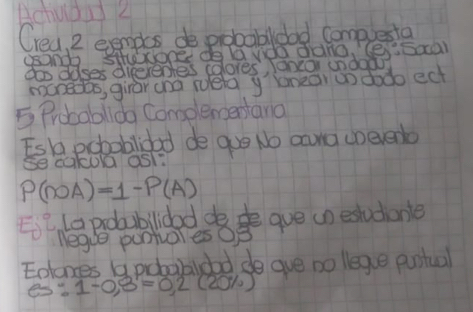 Actividad 2
Crea 2 ejemplos de probabilidad Compuesta
usando situaciones de la vida diaria. (ej: Sacar
dos dulces diferentes colores, lanzar un dado y
monedas, girar una ruleta y lanzar un dado ect
5 Probabilida Complementaria
Es la probabilidad de que No ocurra un evento
se calcula asi:
P(noA) = 1 - P(A)
Ej: La probabilidad de de que un estudiante
llegue puntual es 0,8
Entonces la probabilidad de que no llegue puntual
es: 1-0,8 = 0,2 (20%)